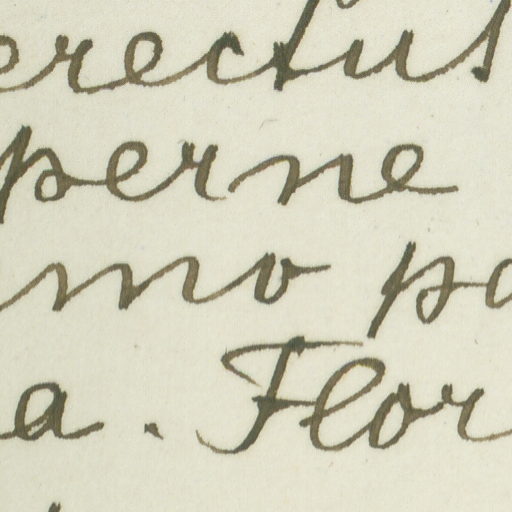 erectus
perne
mo pa
a. Flor